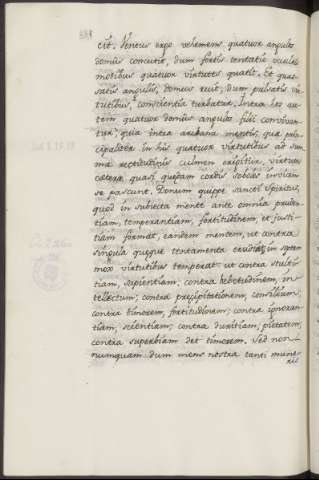 cit. Ventus ergo vehemens quatuor angulos
domus concutit, dum fortis tentatio occultis
motibus quatuor virtutes quatit. Et quas-
satis angulis, domus ruit; dum pulsatis vir-
tutibus, conscientia turbatur. Intra hos au-
tem quatuor domus angulos filii convivan-
tur; quia intra arcana mentis, quæ prin-
cipaliter in his quatuor virtutibus ad sum-
mæ rectitudinis culmen erigitur, virtutes
cæteræ quasi quædam cordis soboles invicem
se pascunt. Donum quippe Sancti Spiritus,
quod in subiecta mente ante omnia pruden-
tiam, temperantiam, fortitudinem, et justi-
tiam format, eandem mentem, ut contra
singula quæque tentamenta erudiat, in septem
mox virtutibus temperat: ut contra stulti-
tiam, sapientiam; contra hebetudinem, in-
tellectum; contra præcipitationem, consilium;
contra timorem, fortitudinem; contra ignoran-
tiam, scientiam; contra duritiam, pietatem;
contra superbiam det timorem. Sed non-
numquam dum mens nostra tanti mune-
ris